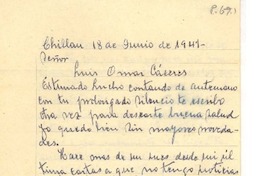 P.691
Chillan 18 de Junio de 1941
Señor
Luis Omar Cáceres
Estimado Lucho contando de antemano
con tu prolongado silencio te escribo
otra vez para desearte buena salud
yo quedo bien sin mayores noveda-
des.
Hace mas de un mes desde mi úl
tima carta a que no tengo noticias